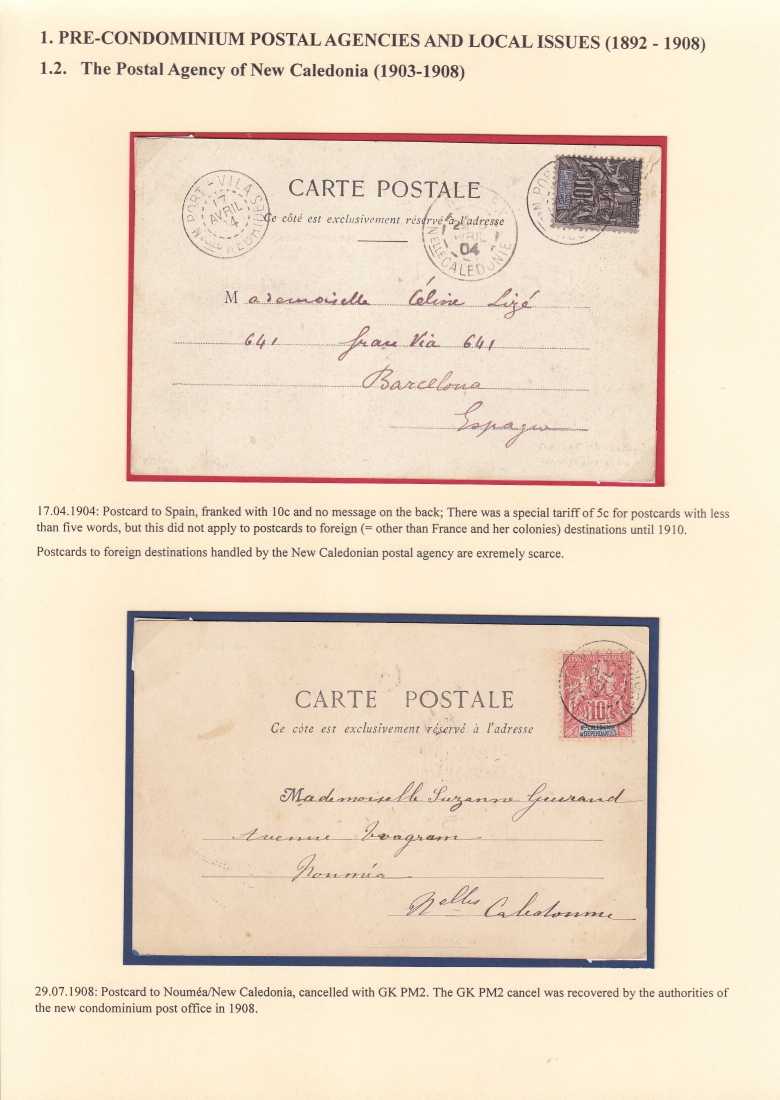 1. PRE-CONDOMINIUM POSTAL AGENCIES AND LOCAL ISSUES (1892 - 1908)
1.2. The Postal Agency of New Caledonia (1903-1908)
PORT-VILA
17
AVRIL
4
CARTE POSTALE
Ce côté est exclusivement réservé à l'adresse
04
Nelle CALEDONIE
10
Mademoiselle Céline Lizé
641 Gran Via 641
Barcelona
Espagne
17.04.1904: Postcard to Spain, franked with 10c and no message on the back; There was a special tariff of 5c for postcards with less
than five words, but this did not apply to postcards to foreign (= other than France and her colonies) destinations until 1910.
Postcards to foreign destinations handled by the New Caledonian postal agency are exremely scarce.
CARTE POSTALE
Ce côte est exclusivement réservé à l'adresse
10
Nlle CALEDONIE
et DÉPENDANCES
Mademoiselle Suzanne
Avenue Wagram
Nouméa
Nelles Caledonnie
29.07.1908: Postcard to Nouméa/New Caledonia, cancelled with GK PM2. The GK PM2 cancel was recovered by the authorities of
the new condominium post office in 1908.